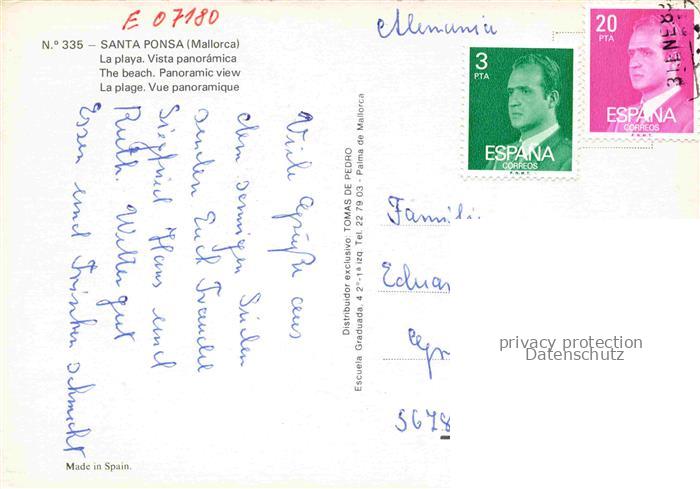 E 07180
N.º 335 – SANTA PONSA (Mallorca)
La playa. Vista panorámica
The beach. Panoramic view
La plage. Vue panoramique
Alemania
3
PTA
ESPAÑA
CORREOS
F.N.M.T.
20
PTA
31 ENE 83
ESPAÑA
CORREOS
F.N.M.T.
Viele Grüße aus
dem sonnigen Süden
senden Euch Traudel
Siegfried Hans und
Ruth. Wetter gut
Essen und Trinken schmeckt
Distribuidor exclusivo: TOMAS DE PEDRO
Escuela Graduada, 4 2º-1ª izq. Tel. 22 79 03 - Palma de Mallorca
Famili
Eduar
5678
privacy protection
Datenschutz
Made in Spain.